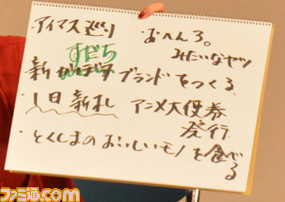 ・アイマス巡り おへんろ。
みたいなヤツ
すだち
・新 ブランドをつくる
・1日新札 アニメ大使券
発行
・とくしまのおいしいモノを食べ
る
ファミ通.com